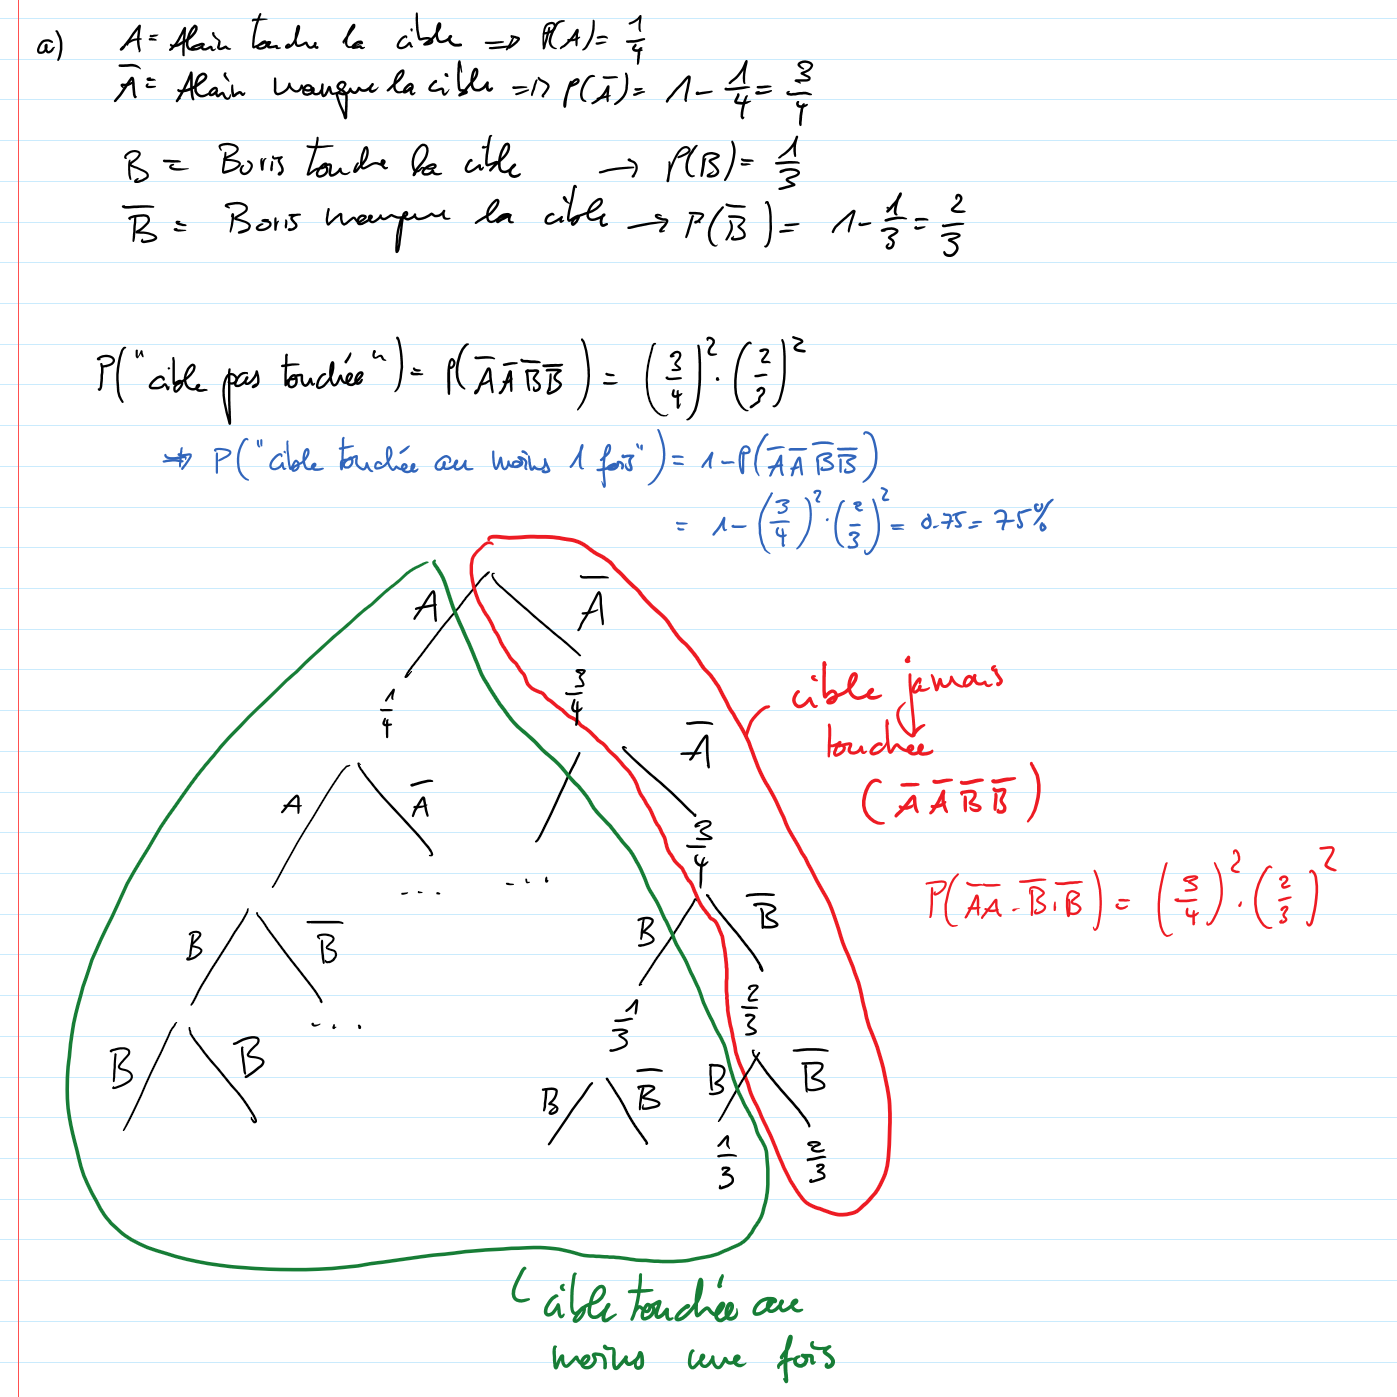 a) A = Alain touche la cible => P(A) = 1/4
A̅ = Alain manque la cible => P(A̅) = 1 - 1/4 = 3/4
B = Boris touche la cible → P(B) = 1/3
B̅ = Boris manque la cible → P(B̅) = 1 - 1/3 = 2/3
P("cible pas touchée") = P(A̅ A̅ B̅ B̅) = (3/4)² · (2/3)²
⇒ P("cible touchée au moins 1 fois") = 1 - P(A̅ A̅ B̅ B̅)
= 1 - (3/4)² · (2/3)² = 0.75 = 75%
A A̅
1/4 3/4
cible jamais
touchée
(A̅ A̅ B̅ B̅)
A̅
A A̅
3/4
... ...
P(A̅A̅.B̅.B̅) = (3/4)² · (2/3)²
B B̅ B B̅
...
1/3 2/3
B B̅ B B̅ B B̅
1/3 2/3
cible touchée au
moins une fois